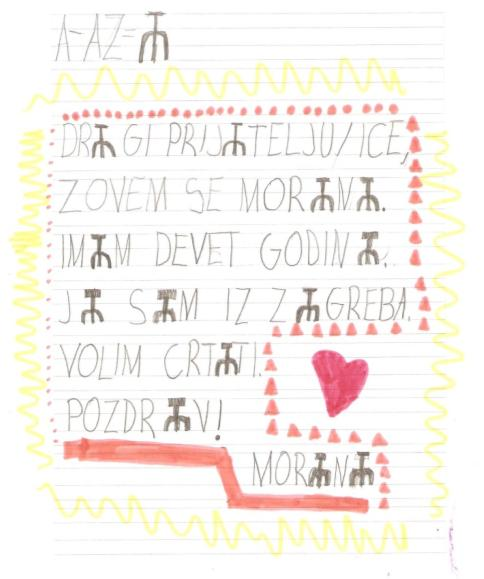 A-AZ=Ⰰ
DRⰀGI PRIJⰀTELJU/ICE,
ZOVEM SE MORⰀNⰀ.
IMⰀM DEVET GODINⰀ.
JⰀ SⰀM IZ ZⰀGREBA.
VOLIM CRTⰀTI.
POZDRⰀV!
MORⰀNⰀ